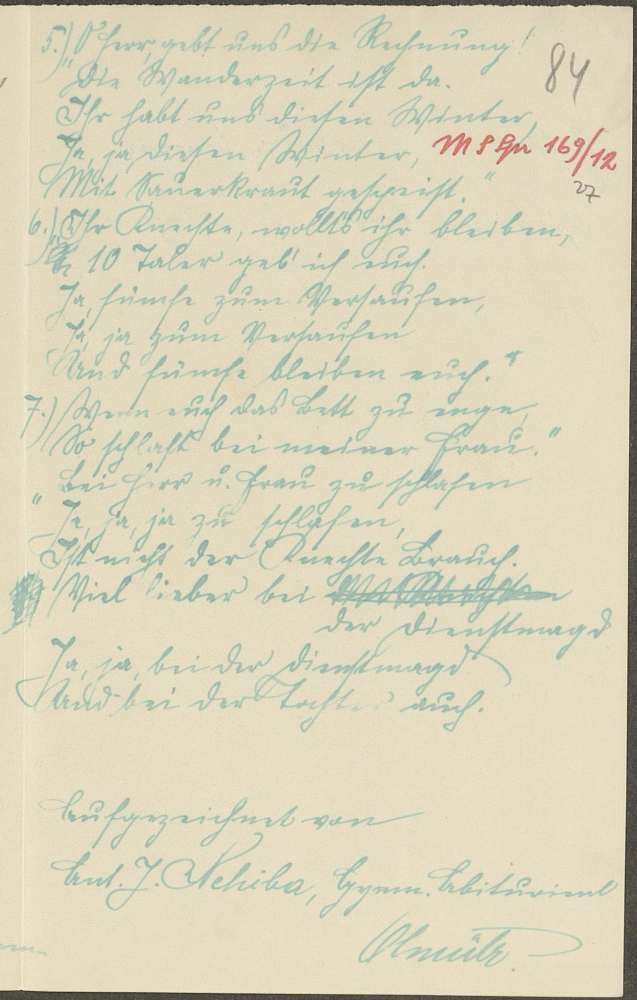 5.) "O Herr, gebt uns die Rechnung!
84
Die Wanderzeit ist da.
Ihr habt uns diesen Winter,
Ja, ja diesen Winter,
169/12
27
Mit Sauerkraut gespeist."
6.) "Ihr Knechte, wollt's ihr bleiben,
10 Taler geb' ich euch.
Ja, fünfe zum Versaufen,
Ja, ja zum Versaufen
Und fünfe bleiben euch."
7.) Wenn euch das Bett zu enge,
So schlaft bei meiner Frau."
"Bei Herr u. Frau zu schlafen
Ja, ja, ja zu schlafen,
Ist nicht der Knechte Brauch.
Viel lieber bei
der Dienstmagd
Ja, ja, bei der Dienstmagd
Und bei der Tochter auch.
Aufgezeichnet von
Ant. J. Nehiba, Gymn. Abiturient
Olmütz.